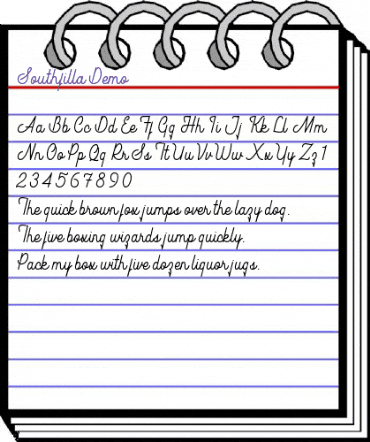 Southfilla Demo
Aa Bb Cc Dd Ee Ff Gg Hh Ii Jj Kk Ll Mm
Nn Oo Pp Qq Rr Ss Tt Uu Vv Ww Xx Yy Zz 1
2 3 4 5 6 7 8 9 0
The quick brown fox jumps over the lazy dog.
The five boxing wizards jump quickly.
Pack my box with five dozen liquor jugs.